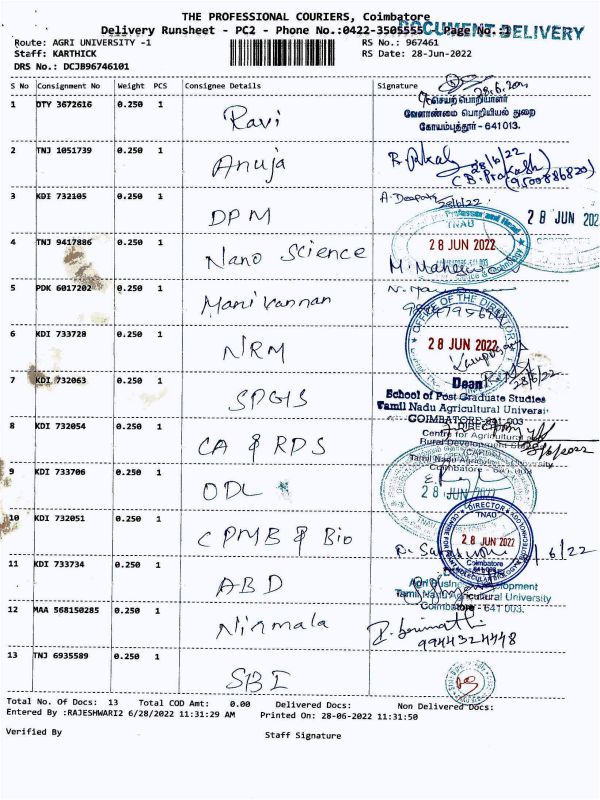 THE PROFESSIONAL COURIERS, Coimbatore
Delivery Runsheet - PC2 - Phone No.:0422-3505555 - Page No.:1
DOCUMENT DELIVERY
Route: AGRI UNIVERSITY -1 RS No.: 967461
Staff: KARTHICK RS Date: 28-Jun-2022
DRS No.: DCJB96746101
S No Consignment No Weight PCS Consignee Details Signature
1 DTY 3672616 0.250 1 Ravi
செயற் பொறியாளர்
வேளாண்மை பொறியியல் துறை
கோயம்புத்தூர் - 641013.
2 TNJ 1051739 0.250 1 Anuja 28/6/22
C.B. Prakash
(9500886820)
3 KDI 732105 0.250 1 DPM 28/6/22
Professor and Head
TNAU
28 JUN 2022
28 JUN 202
4 TNJ 9417886 0.250 1 Nano Science
5 PDK 6017202 0.250 1 Manikannan
OFFICE OF THE DIRECTOR
6 KDI 733728 0.250 1 NRM 28 JUN 2022
7 KDI 732063 0.250 1 SPGS 28/6/22
Dean
School of Post Graduate Studies
Tamil Nadu Agricultural Universi
COIMBATORE-641 003
8 KDI 732054 0.250 1 CA & RDS
DIRECTOR
Centre for Agricultural and
Rural Development
Tamil Nadu Agricultural University
Coimbatore
9 KDI 733706 0.250 1 ODL
28 JUN 2022
10 KDI 732051 0.250 1 CPMB & Bio
DIRECTOR
TNAU
28 JUN 2022
Coimbatore
641 003
11 KDI 733734 0.250 1 ABD
Agri Business Development
Tamil Nadu Agricultural University
Coimbatore - 641 003.
12 MAA 568150285 0.250 1 Nirmala
9944324448
13 TNJ 6935589 0.250 1 SBI
Total No. Of Docs: 13 Total COD Amt: 0.00 Delivered Docs: Non Delivered Docs:
Entered By :RAJESHWARI2 6/28/2022 11:31:29 AM Printed On: 28-06-2022 11:31:50
Verified By Staff Signature